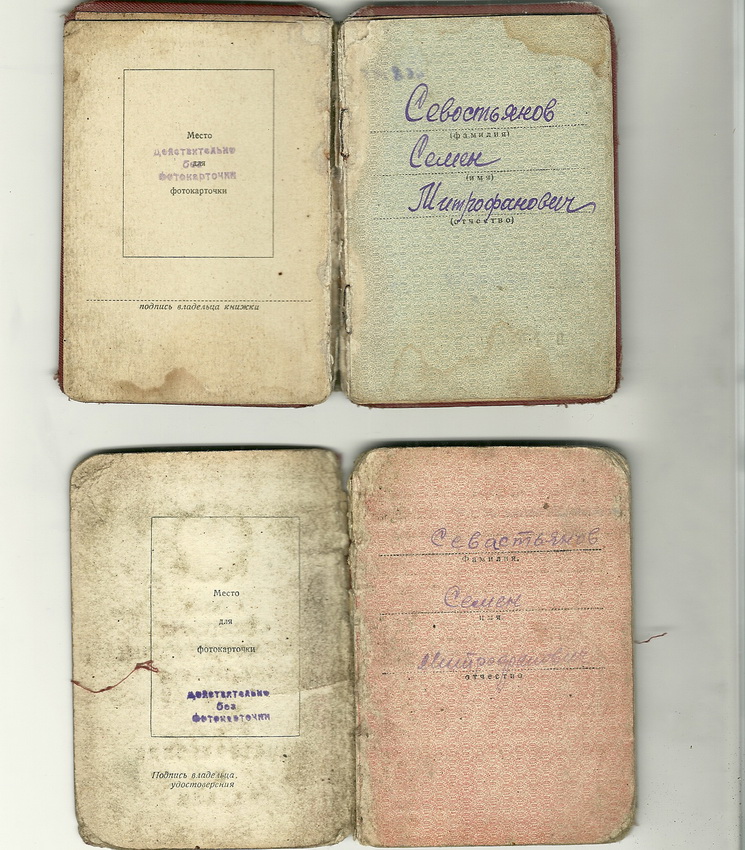 Место
для
фотокарточки
Действительно
без
фотокарточки
подпись владельца книжки
Севостьянов
(фамилия)
Семен
(имя)
Митрофанович
(отчество)
Место
для
фотокарточки
Действительно
без
фотокарточки
Подпись владельца,
удостоверения
Севастьянов
Фамилия,
Семен
имя
Митрофанович
отчество